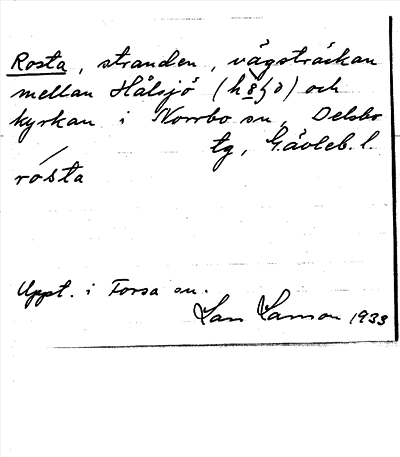 Rosta, stranden, vägsträckan
mellan Hålsjö (h o̲ʃö) och
kyrkan i Norrbo sn, Delsbo
tg, Gävleb. l.
rósta
Uppt. i Forsa sn.
Lars Larsson 1933